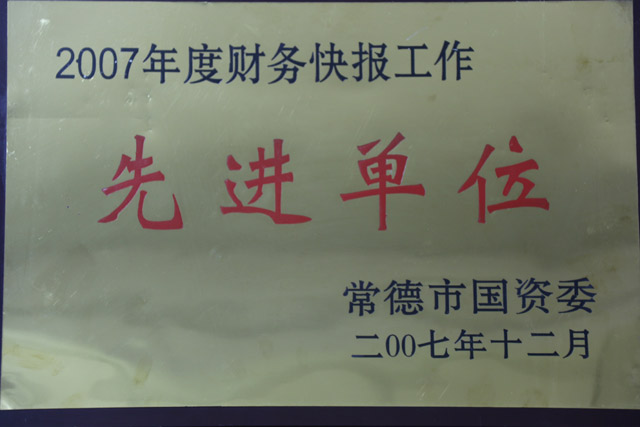 2007年度财务快报工作
先进单位
常德市国资委
二00七年十二月